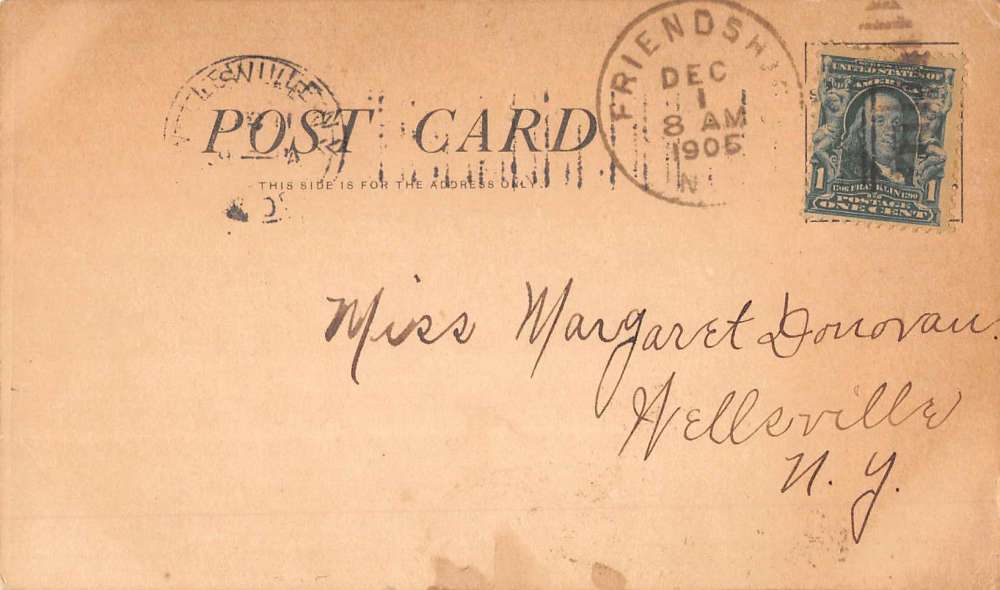 FRIENDSHIP
DEC
1
8 AM
1905
N
POST CARD
THIS SIDE IS FOR THE ADDRESS ONLY.
UNITED STATES OF
AMERICA
1 1706 FRANKLIN 1790 1
POSTAGE
ONE CENT
Miss Margaret Donovan.
Wellsville
N. Y.